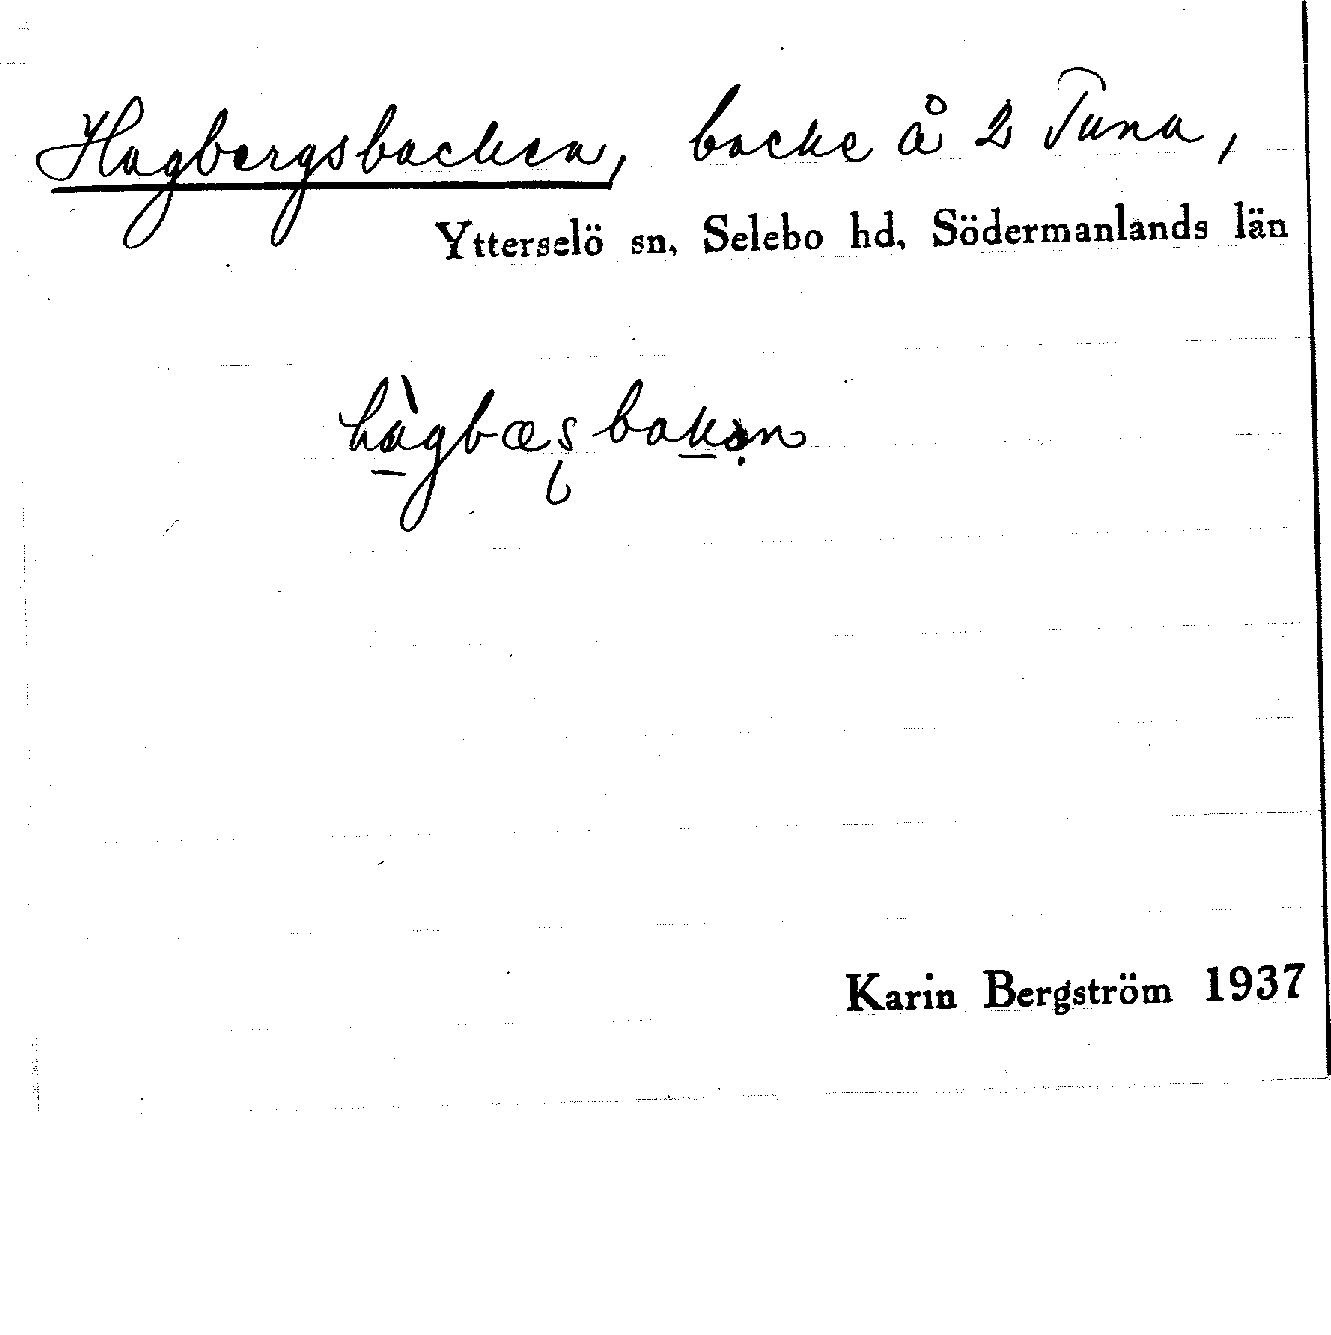 Hagbergsbacken, backe å 2 Tuna,
Ytterselö sn, Selebo hd, Södermanlands län
hàgbæʂbakən
Karin Bergström 1937